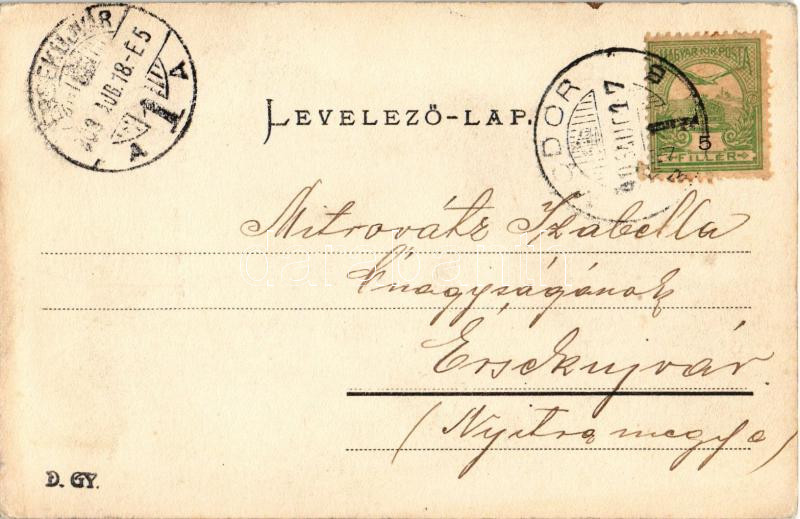 ÉRSEKUJVÁR
903 AUG. 18.-E 5
A T A
LEVELEZŐ-LAP.
MAGYAR KIR. POSTA
5
FILLÉR
Mitrovátz Izabella
Őnagyságának
Érsekujvár
(Nyitra megye)
D. GY.